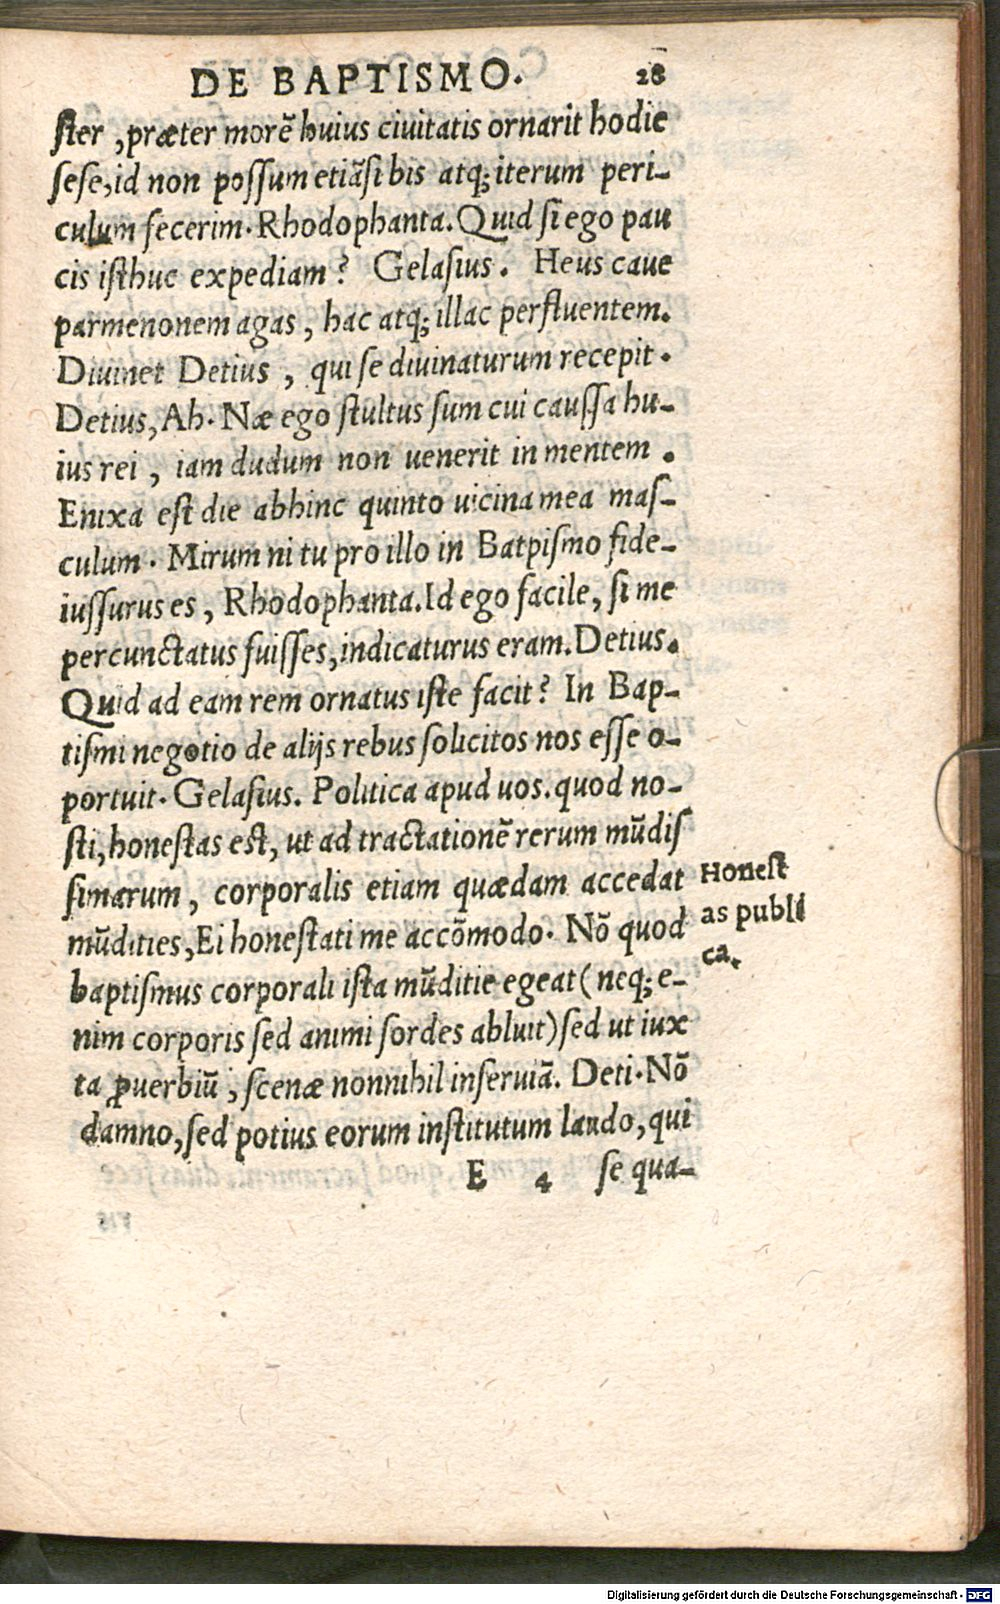 DE BAPTISMO. 28
ſter, præter morẽ huius ciuitatis ornarit hodie
ſeſe, id non poſſum etiãſi bis atq; iterum peri-
culum fecerim. Rhodophanta. Quid ſi ego pau
cis iſthuc expediam? Gelaſius. Heus caue
parmenonem agas, hac atq; illac perfluentem.
Diuinet Detius, qui ſe diuinaturum recepit.
Detius, Ah. Næ ego ſtultus ſum cui cauſſa hu-
ius rei, iam dudum non uenerit in mentem.
Enixa eſt die abhinc quinto uicina mea maſ-
culum. Mirum ni tu pro illo in Batpiſmo fide-
iuſſurus es, Rhodophanta. Id ego facile, ſi me
percunctatus fuiſſes, indicaturus eram. Detius.
Quid ad eam rem ornatus iſte facit? In Bap-
tiſmi negotio de alijs rebus ſolicitos nos eſſe o-
portuit. Gelaſius. Politica apud uos. quod no-
ſti, honeſtas eſt, ut ad tractationẽ rerum mũdiſ
ſimarum, corporalis etiam quædam accedat
mũdities, Ei honeſtati me accõmodo. Nõ quod
baptiſmus corporali iſta mũditie egeat (neq; e-
nim corporis ſed animi ſordes abluit) ſed ut iux
ta ꝓuerbiũ, ſcenæ nonnihil inſeruiã. Deti. Nõ
damno, ſed potius eorum inſtitutum laudo, qui
E 4 ſe qua-
Honeſt
as publi
ca.
Digitalisierung gefördert durch die Deutsche Forschungsgemeinschaft - DFG